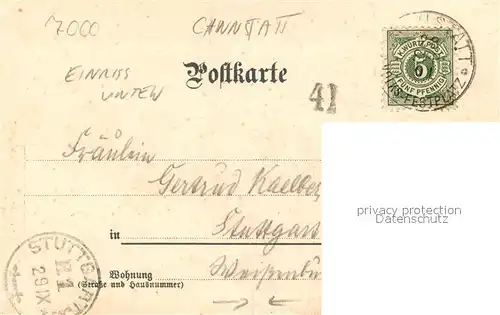 7000
CANNSTATT
EINRISS
UNTEN
Postkarte
41
K. WÜRTT. POST
5
FÜNF PFENNIG
FESTPLATZ
Fräulein
Gertrud
Stuttgart
in
Wohnung
(Straße und Hausnummer)
STUTTGART
29 IX
privacy protection
www.